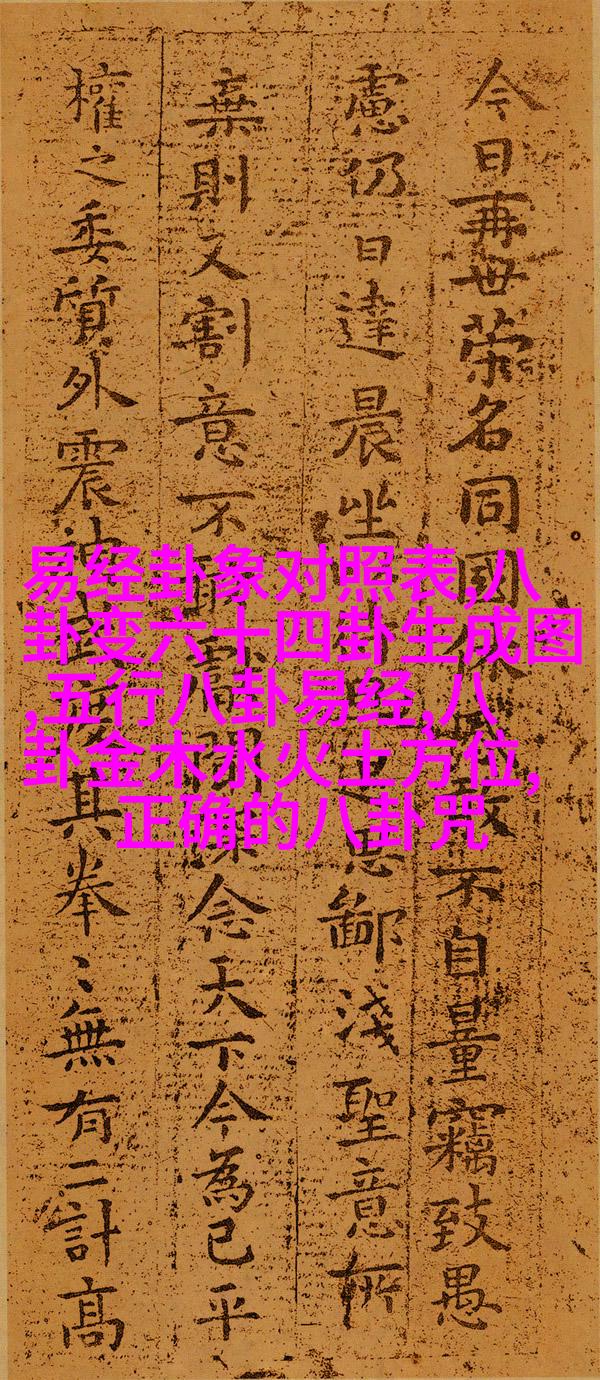 今日再世荣名同國休敢不自量竊致愚
慮仍日達晨坐思鄙淺聖意所
棄則又割意不念天下今為已平
權之委質外震神其拳〻無有二計高
易经卦象对照表,八
卦变六十四卦生成图
,五行八卦易经,八
卦金木水火土方位,
正确的八卦咒